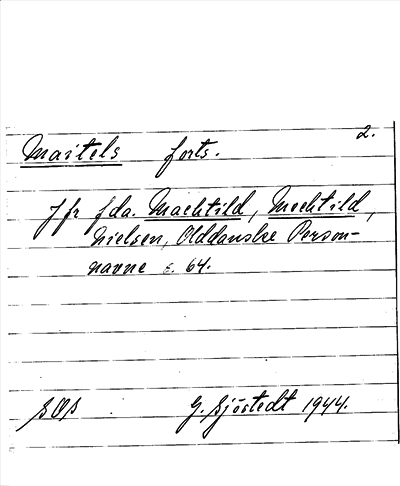 2.
Maitels forts.
Jfr fda. Machtild, Mechtild,
Nielsen, Olddanske Person-
navne s. 64.
SOS G. Sjöstedt 1944.